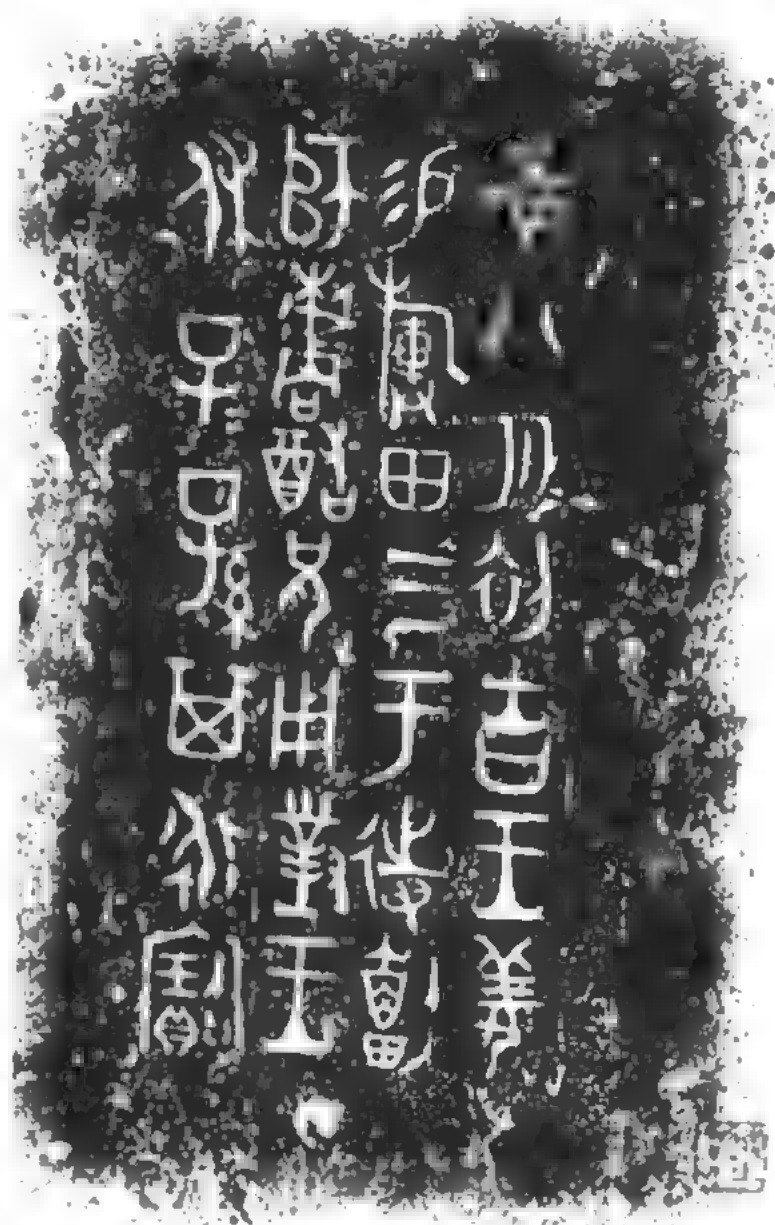 唯八月初吉王姜
易旟田三于待劃
師楷酷兄用對王
休子子孫其永寶